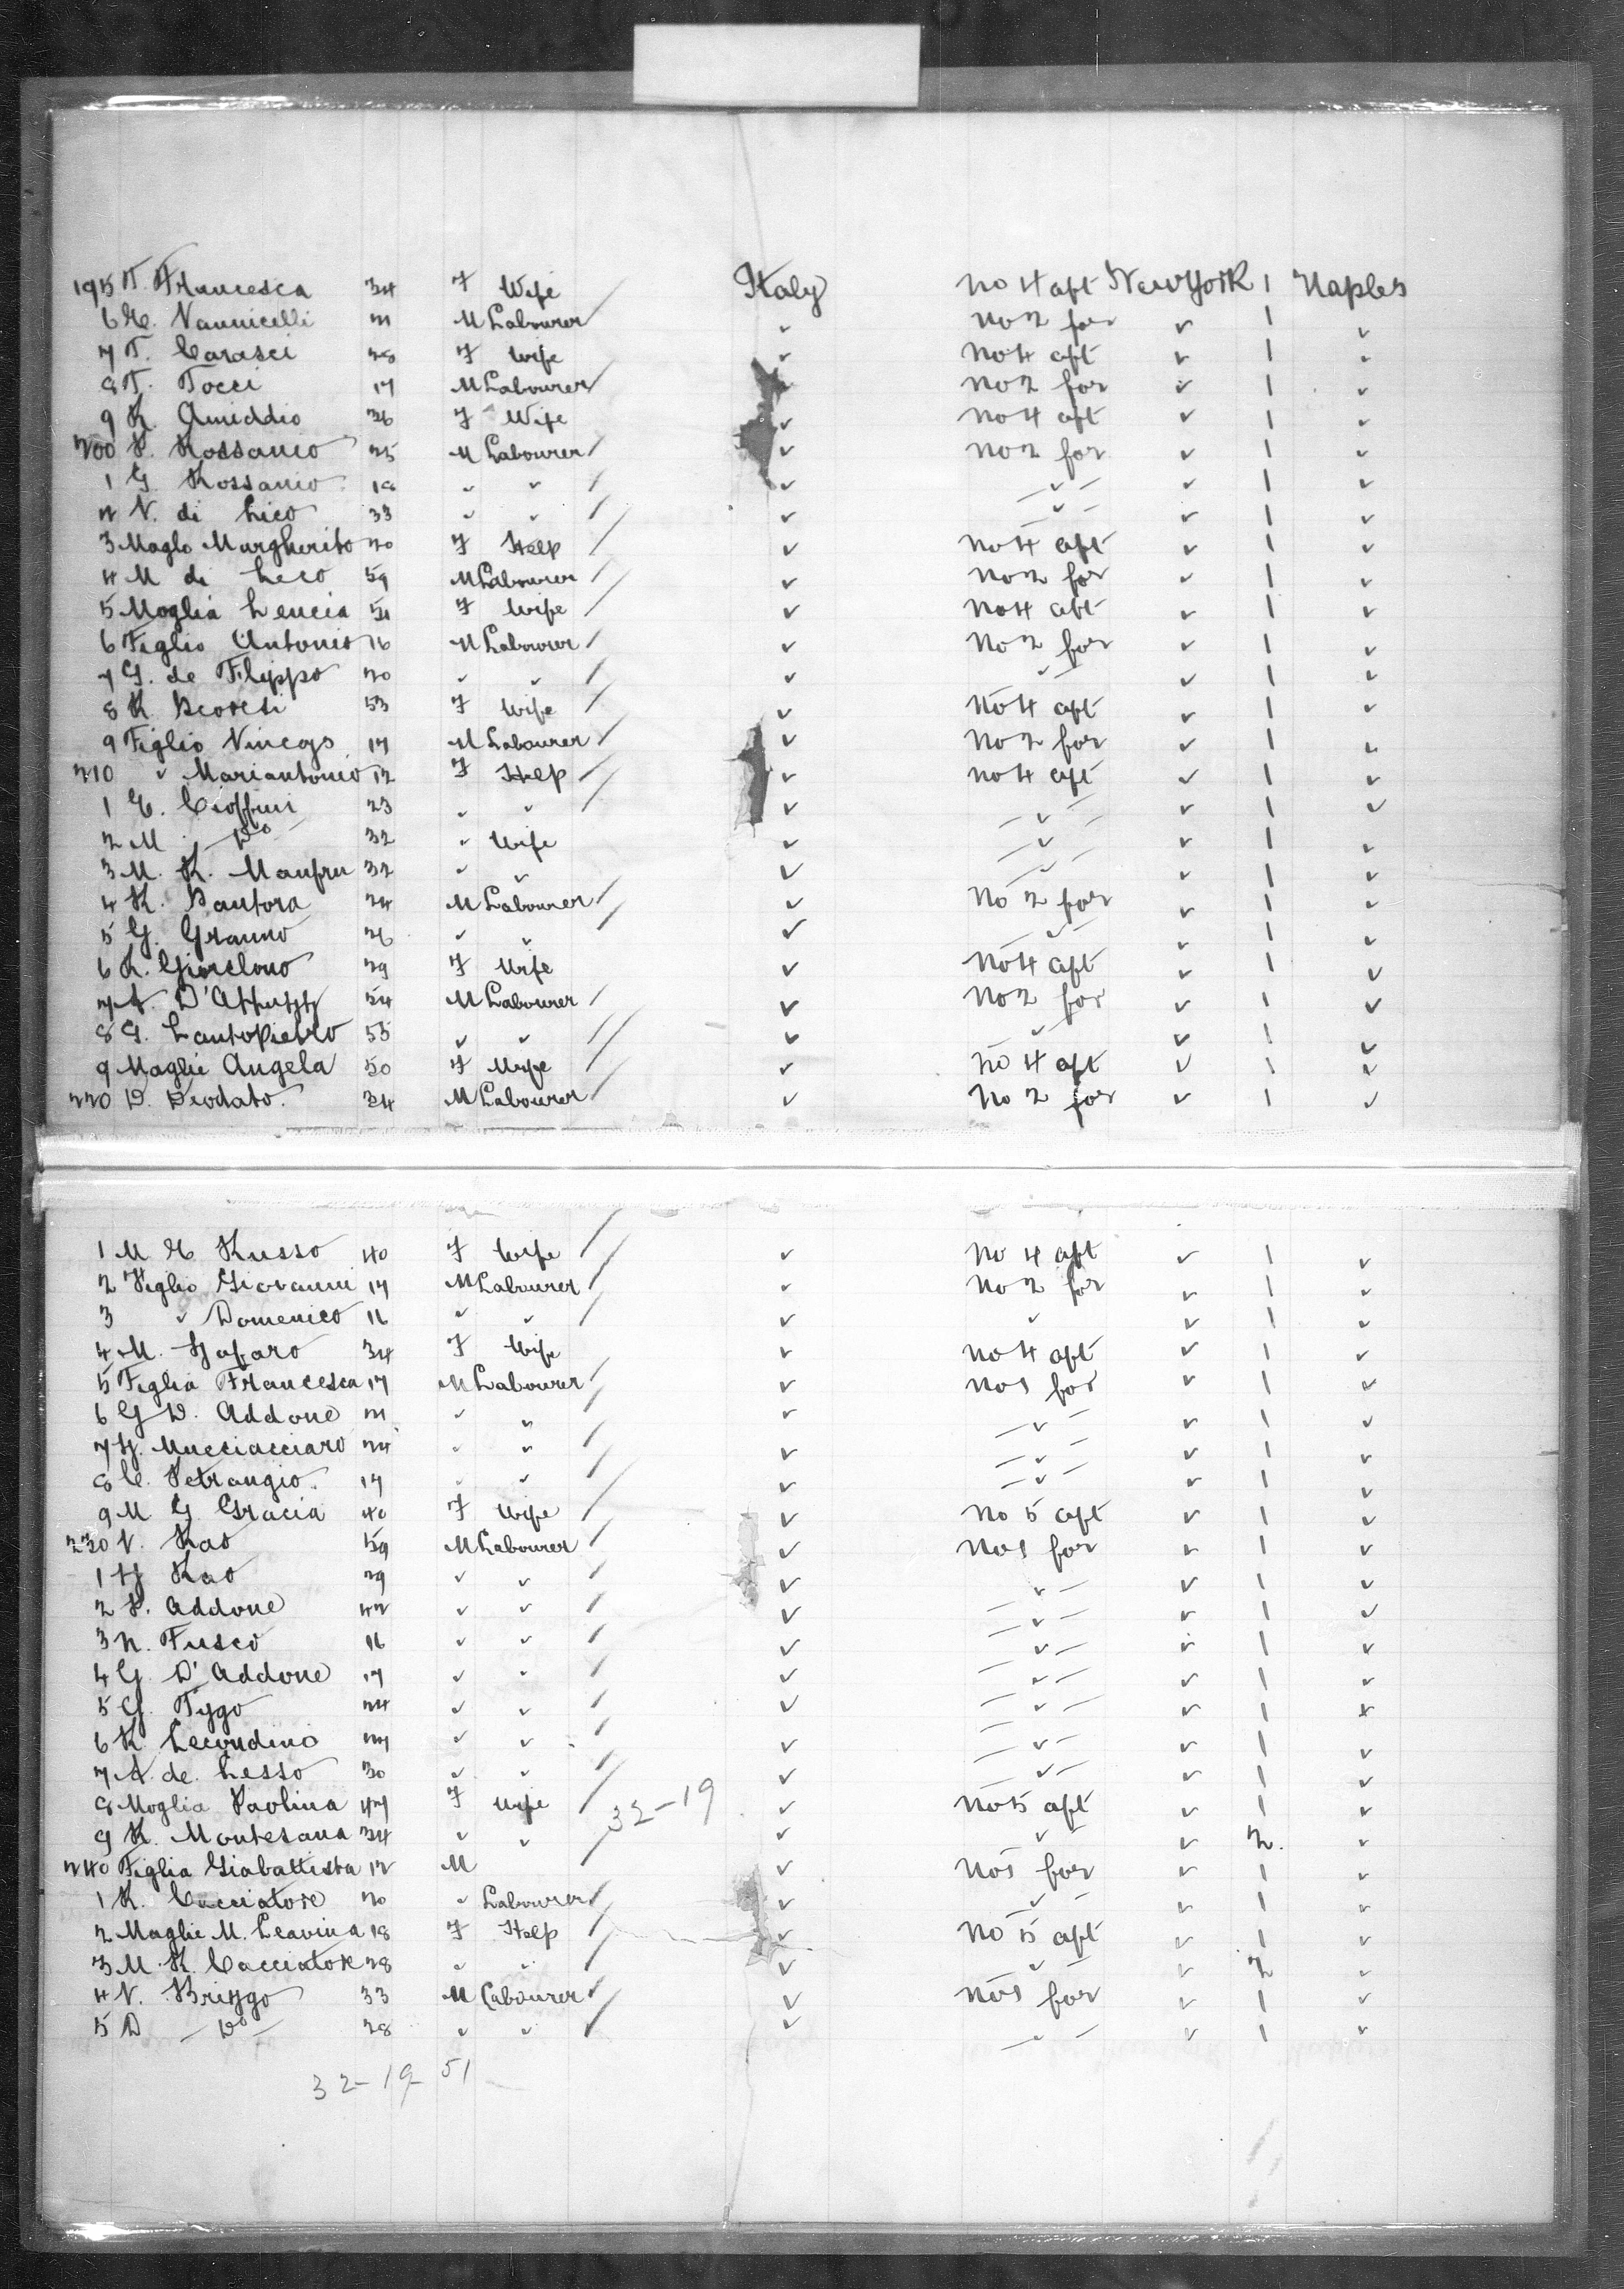 195 T. Francesca 34 F Wife Italy No 4 aft New York 1 Naples
6 Vannicelli 21 M Labourer ✓ No 2 for ✓ 1 ✓
7 T. Carasci 28 F Wife ✓ No 4 aft ✓ 1 ✓
8 T. Tocci 17 M Labourer No 2 for ✓ 1 ✓
9 R. Amiddio 26 F Wife ✓ No 4 aft ✓ 1 ✓
200 P. Rossanio 25 M Labourer ✓ No 2 for ✓ 1 ✓
1 G. Rossanio 18 ✓ ✓ ✓ — ✓ — ✓ 1 ✓
2 N. di 33 ✓ ✓ ✓ — ✓ — ✓ 1 ✓
3 Maglo Margherito 20 F Help ✓ No 4 aft ✓ 1 ✓
4 M di 59 M Labourer ✓ No 2 for ✓ 1 ✓
5 Moglia 51 F Wife ✓ No 4 aft ✓ 1 ✓
6 Figlio Antonio 16 M Labourer ✓ No 2 for ✓ 1 ✓
7 G. de Filippo 20 ✓ ✓ ✓ — ✓ — ✓ 1 ✓
8 R. 53 F Wife ✓ No 4 aft ✓ 1 ✓
9 Figlio 17 M Labourer ✓ No 2 for ✓ 1 ✓
210 ✓ Mariantonio 12 F Help ✓ No 4 aft ✓ 1 ✓
1 Cioffini 23 ✓ ✓ ✓ — ✓ — ✓ 1 ✓
2 M — Do — 32 ✓ Wife ✓ — ✓ — ✓ 1 ✓
3 M. R. 32 ✓ ✓ ✓ — ✓ — ✓ 1 ✓
4 R. 24 M Labourer ✓ No 2 for ✓ 1 ✓
5 G. 26 ✓ ✓ ✓ — ✓ — ✓ 1 ✓
6 R. 29 F Wife ✓ No 4 aft ✓ 1 ✓
7 A. 54 M Labourer ✓ No 2 for ✓ 1 ✓
8 G. 55 ✓ ✓ ✓ ✓ ✓ 1 ✓
9 Moglie Angela 50 F Wife ✓ No 4 aft ✓ 1 ✓
220 D. Deodato 34 M Labourer ✓ No 2 for ✓ 1 ✓
1 M Russo 40 F Wife ✓ No 4 aft ✓ 1 ✓
2 Figlio Giovanni 17 M Labourer ✓ No 2 for ✓ 1 ✓
3 ✓ Domenico 16 ✓ ✓ ✓ ✓ ✓ 1 ✓
4 M. 34 F Wife ✓ No 4 aft ✓ 1 ✓
5 Figlia Francesca 17 M Labourer ✓ No 1 for ✓ 1 ✓
6 G D. Addone 21 ✓ ✓ ✓ — ✓ — ✓ 1 ✓
7 Mucciacciaro 24 ✓ ✓ ✓ — ✓ — ✓ 1 ✓
8 C. Petrangio 17 ✓ ✓ ✓ — ✓ — ✓ 1 ✓
9 M G Gracia 40 F Wife ✓ No 5 aft ✓ 1 ✓
230 V. Rao 59 M Labourer ✓ No 1 for ✓ 1 ✓
1 Rao 29 ✓ ✓ ✓ ✓ — ✓ 1 ✓
2 P. Addone 42 ✓ ✓ ✓ — ✓ — ✓ 1 ✓
3 N. Fusco 16 ✓ ✓ ✓ — ✓ — ✓ 1 ✓
4 G. D'Addone 17 ✓ ✓ ✓ — ✓ — ✓ 1 ✓
5 G. 24 ✓ ✓ ✓ — ✓ — ✓ 1 ✓
6 R. 27 ✓ ✓ ✓ — ✓ — ✓ 1 ✓
7 A. de 30 ✓ ✓ ✓ — ✓ — ✓ 1 ✓
8 Moglia Paolina 47 F Wife 32-19 ✓ No 5 aft ✓ 1 ✓
9 R. Montesana 34 ✓ ✓ ✓ ✓ ✓ 2 ✓
240 Figlia Giabattista 12 M ✓ No 1 for ✓ 1 ✓
1 R. Cacciatore 20 ✓ Labourer ✓ — ✓ — ✓ 1 ✓
2 Moglie M. 18 F Help ✓ No 5 aft ✓ 1 ✓
3 M. R. Cacciatore 28 ✓ ✓ ✓ ✓ ✓ 2 ✓
4 V. 33 M Labourer ✓ No 1 for ✓ 1 ✓
5 D — Do — 28 ✓ ✓ ✓ — ✓ — ✓ 1 ✓
32-19-51